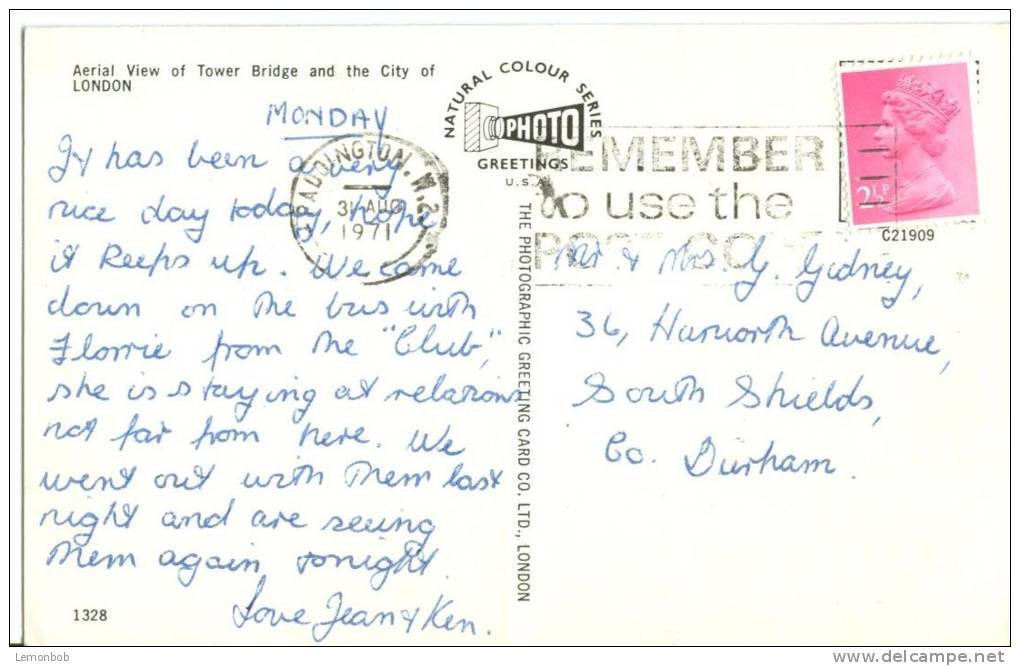 Aerial View of Tower Bridge and the City of
LONDON
MONDAY
It has been a very
nice day today, hope
it keeps up. We came
down on the bus with
Florrie from the "Club",
she is staying at relations
not far from here. We
went out with them last
night and are seeing
them again tonight.
Love Jean & Ken.
1328
NATURAL COLOUR SERIES
PHOTO
GREETINGS
U.S.A.
THE PHOTOGRAPHIC GREETING CARD CO. LTD., LONDON
PADDINGTON. W.2
31 AUG
1971
REMEMBER
to use the
POST CODE
2½P
C21909
Mr. & Mrs. G. Gidney,
36, Harworth Avenue,
South Shields,
Co. Durham.
Lemonbob
www.delcampe.net